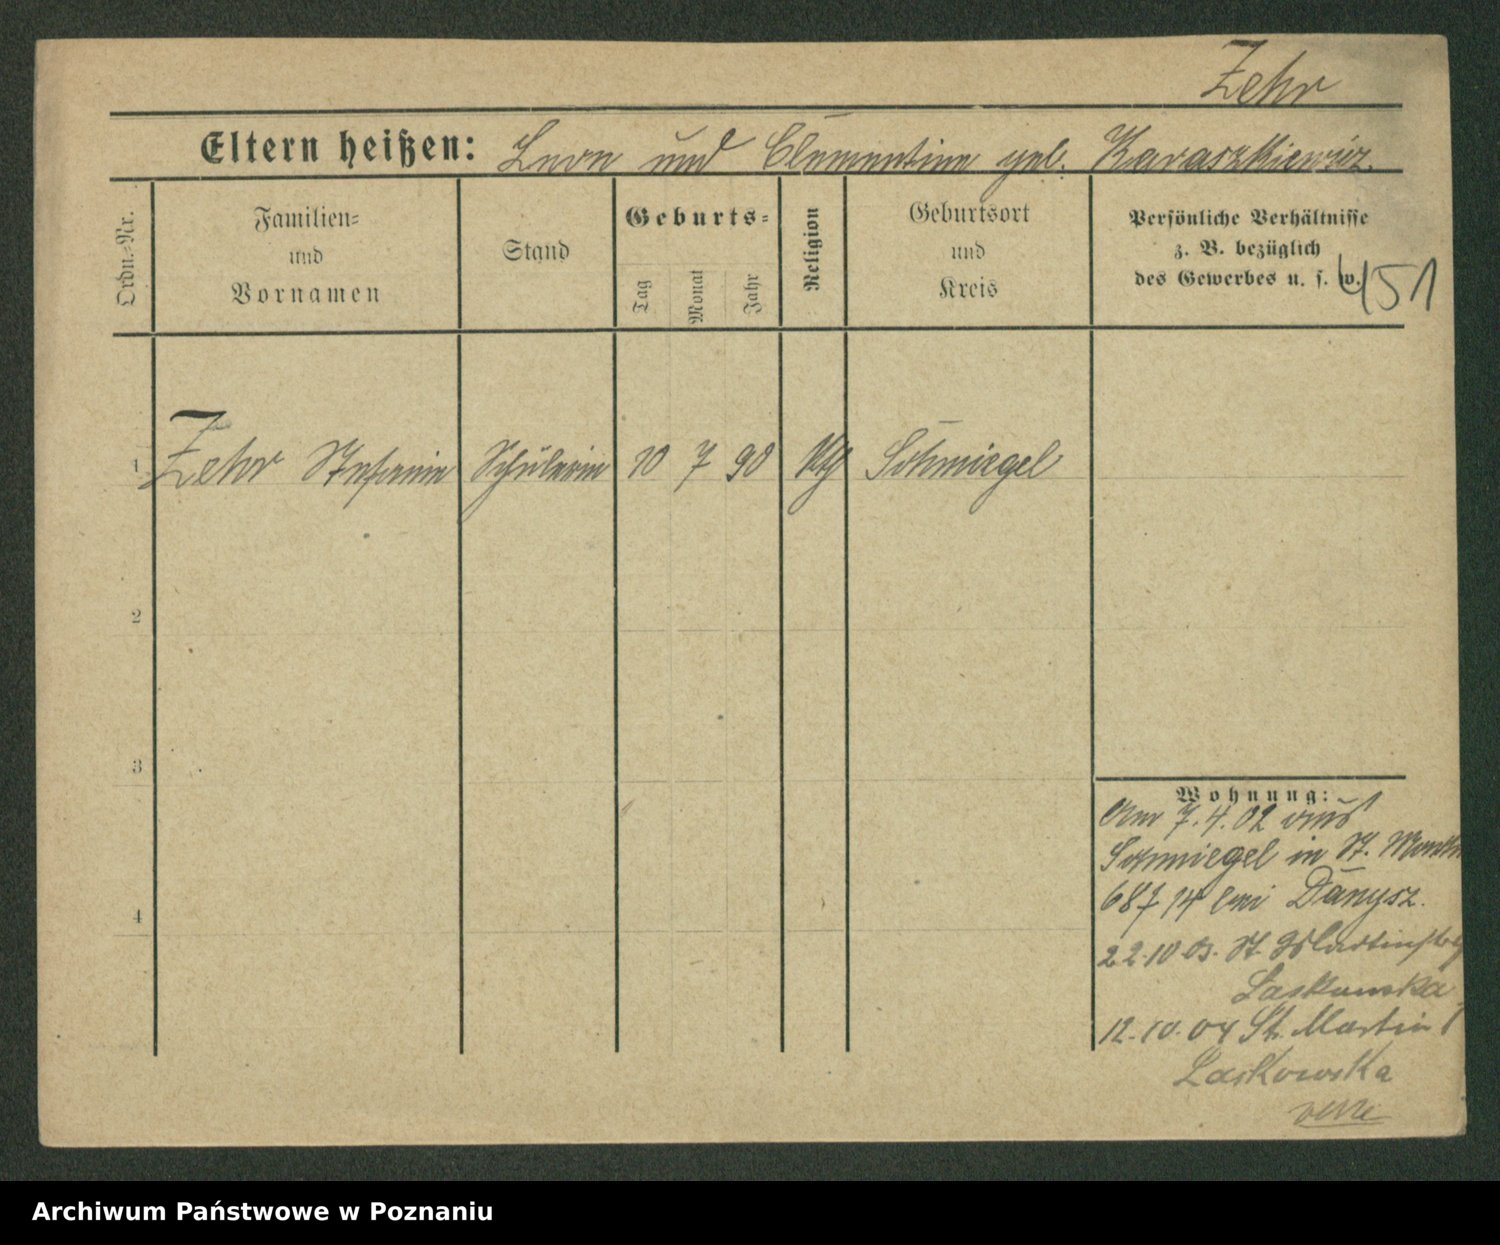 Zehr
Eltern heißen: Leon und Clementine geb. Karaszkiewicz.
Ordn.=Nr.
Familien=
und
Vornamen
Stand
Geburts=
Tag
Monat
Jahr
Religion
Geburtsort
und
Kreis
Persönliche Verhältnisse
z. B. bezüglich
des Gewerbes u. s. w.
451
1 Zehr Stefanie Schülerin 10 7 90 Kth Schmiegel
2
3
4
Wohnung:
Am 7.4.02 aus
Schmiegel in St. Martin
14 bei Danysz.
22.10.03. St. Martinstr
Laskowska
12.10.04 St. Martin
Laskowska
Archiwum Państwowe w Poznaniu